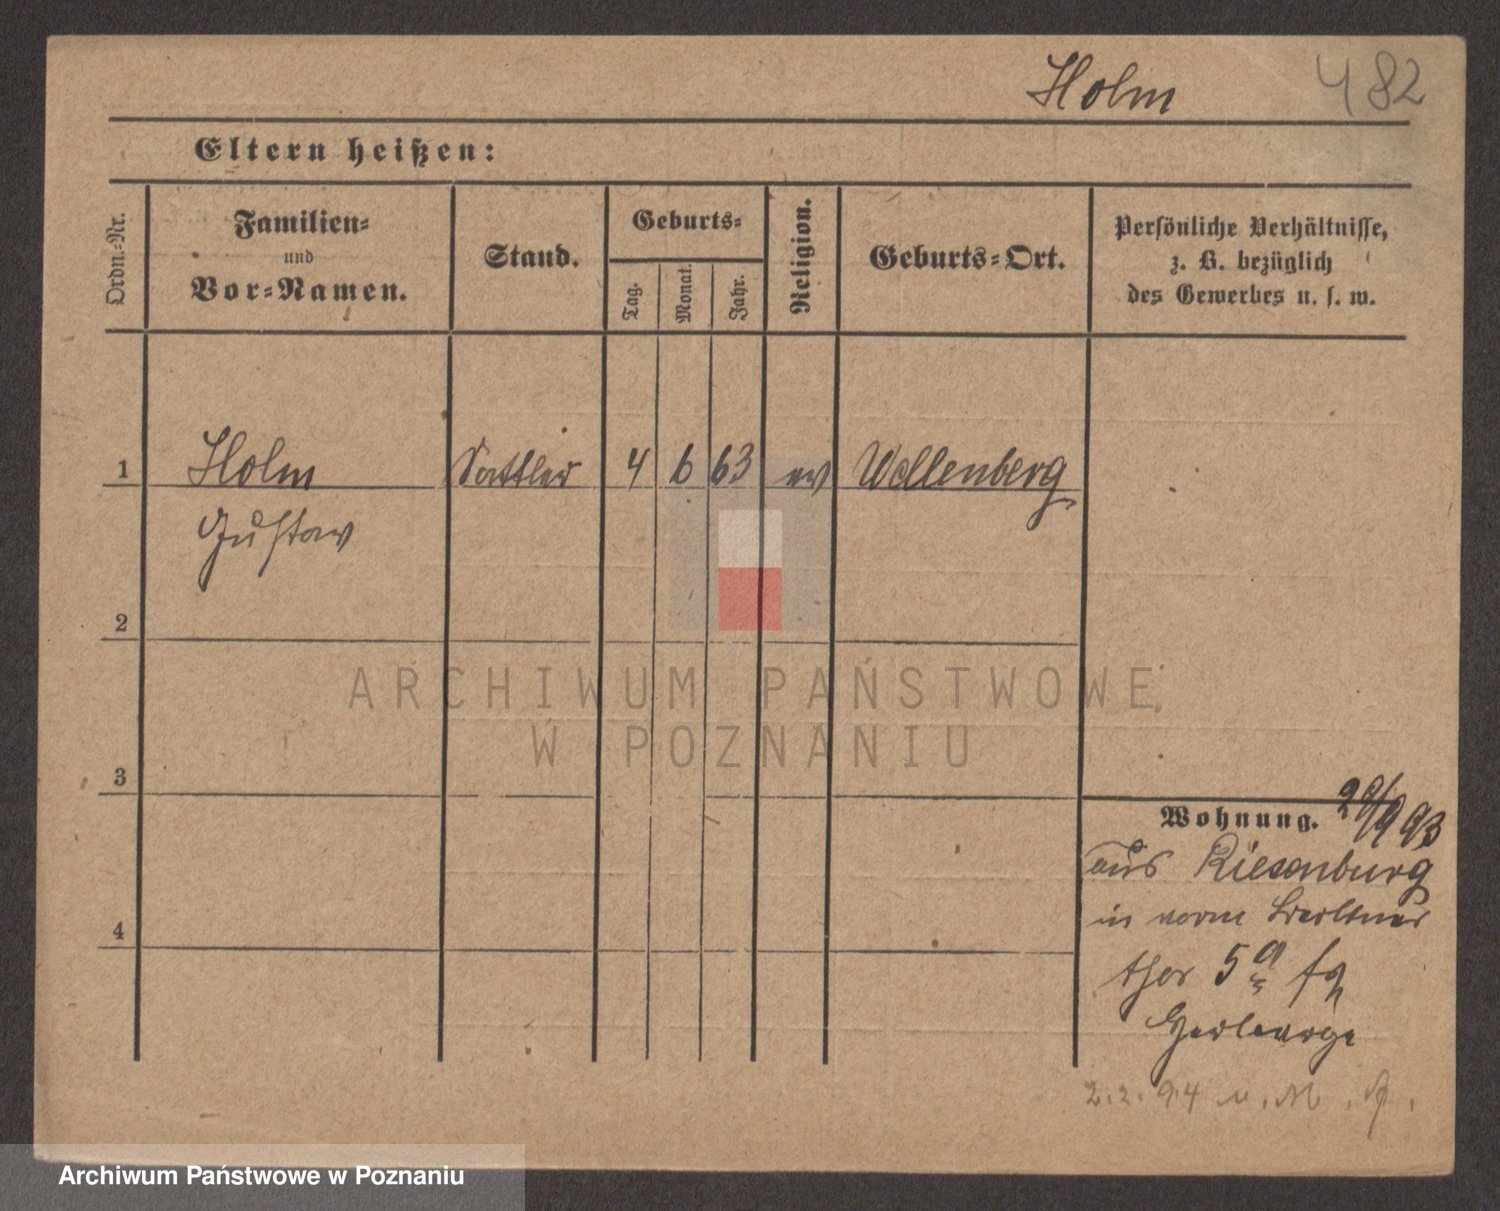 Holm 482
Eltern heißen:
Ordn.-Nr.
Familien-
und
Vor-Namen.
Stand.
Geburts-
Tag.
Monat.
Jahr.
Religion.
Geburts-Ort.
Persönliche Verhältnisse,
z. B. bezüglich
des Gewerbes u. s. w.
1 Holm Sattler 4 6 63 ev Wollenberg
Gustav
2
3
4
Wohnung. 29/9 93
aus Riesenburg
in vorm Berliner
thor 5a
Herberge
2.2.94 n. M.
ARCHIWUM PAŃSTWOWE
W POZNANIU
Archiwum Państwowe w Poznaniu